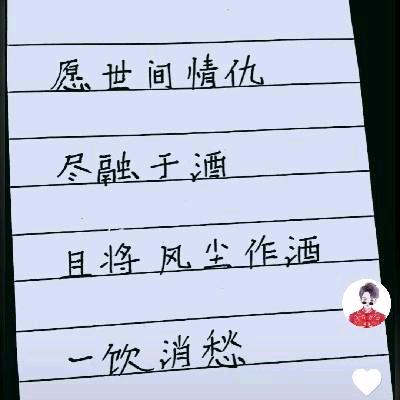 愿世间情仇
尽融于酒
且将风尘作酒
一饮消愁